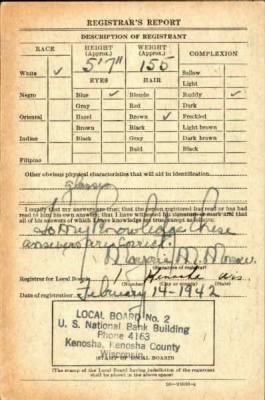 REGISTRAR'S REPORT
DESCRIPTION OF REGISTRANT
RACE
HEIGHT (Approx.)
WEIGHT (Approx.)
COMPLEXION
White ✓
5'7"
155
Sallow
Light
EYES
HAIR
Negro
Blue ✓
Blonde
Ruddy ✓
Gray
Red
Dark
Oriental
Hazel
Brown ✓
Freckled
Brown
Black
Light brown
Indian
Black
Gray
Dark brown
Bald
Black
Filipino
Other obvious physical characteristics that will aid in identification
glasses
I certify that my answers are true; that the person registered has read or has had
read to him his own answers; that I have witnessed his signature or mark and that
all of his answers of which I have knowledge are true, except as follows:
To my knowledge these
answers are correct.
(Signature of registrar)
Registrar for Local Board 1 Kenosha Wis.
(City or county)
Date of registration February 14-1942
LOCAL BOARD No. 2
U. S. National Bank Building
Phone 4163
Kenosha, Kenosha County
Wisconsin
(STAMP OF LOCAL BOARD)
(The stamp of the Local Board having jurisdiction of the registrant
shall be placed in the above space)